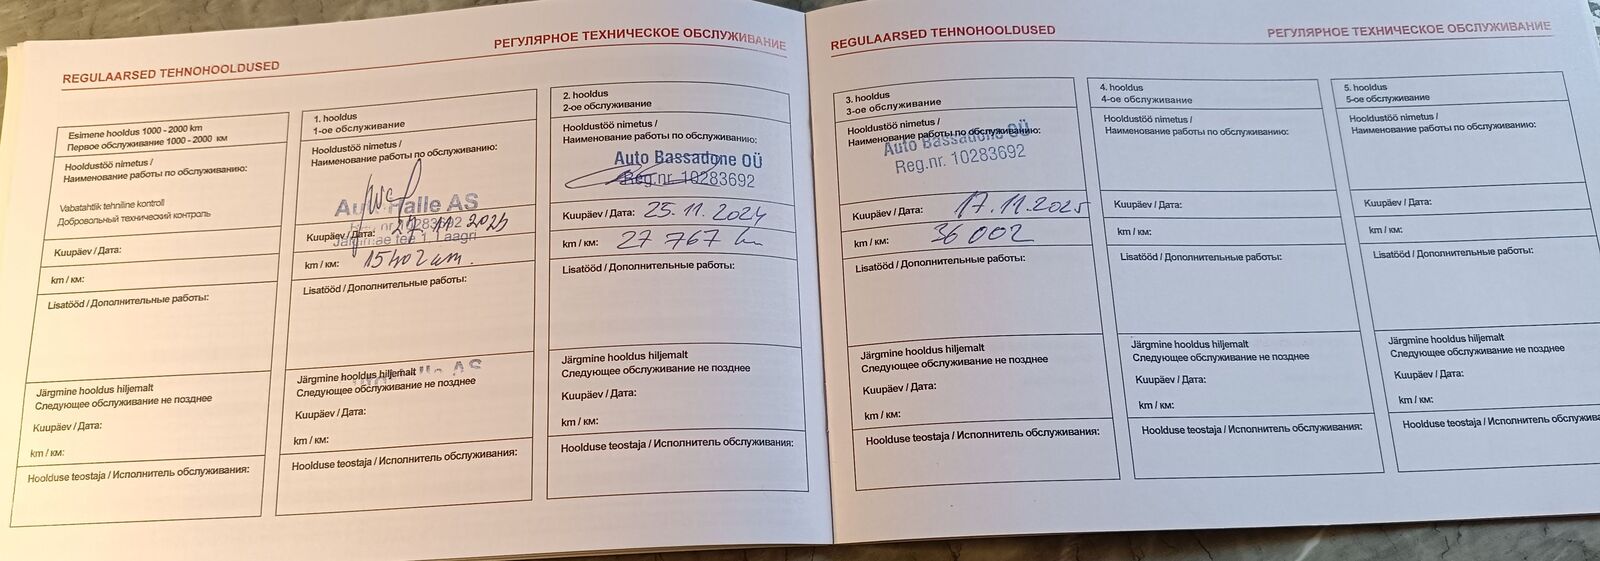 REGULAARSED TEHNOHOOLDUSED
РЕГУЛЯРНОЕ ТЕХНИЧЕСКОЕ ОБСЛУЖИВАНИЕ
Esimene hooldus 1000 - 2000 km
Первое обслуживание 1000 - 2000 км
Hooldustöö nimetus /
Наименование работы по обслуживанию:
Vabatahtlik tehniline kontroll
Добровольный технический контроль
Kuupäev / Дата:
km / км:
Lisatööd / Дополнительные работы:
Järgmine hooldus hiljemalt
Следующее обслуживание не позднее
Kuupäev / Дата:
km / км:
Hoolduse teostaja / Исполнитель обслуживания:
1. hooldus
1-ое обслуживание
Hooldustöö nimetus /
Наименование работы по обслуживанию:
Halle AS
10283692
Kuupäev / Дата: 27.11 2023
tee 1 Laagri
km / км: 15402 km.
Lisatööd / Дополнительные работы:
AS
Järgmine hooldus hiljemalt
Следующее обслуживание не позднее
Kuupäev / Дата:
km / км:
Hoolduse teostaja / Исполнитель обслуживания:
2. hooldus
2-ое обслуживание
Hooldustöö nimetus /
Наименование работы по обслуживанию:
Auto Bassadone OÜ
Reg.nr. 10283692
Kuupäev / Дата: 25.11.2024
km / км: 27 767 km
Lisatööd / Дополнительные работы:
Järgmine hooldus hiljemalt
Следующее обслуживание не позднее
Kuupäev / Дата:
km / км:
Hoolduse teostaja / Исполнитель обслуживания:
REGULAARSED TEHNOHOOLDUSED
РЕГУЛЯРНОЕ ТЕХНИЧЕСКОЕ ОБСЛУЖИВАНИЕ
3. hooldus
3-ое обслуживание
Hooldustöö nimetus /
Наименование работы по обслуживанию:
Auto Bassadone OÜ
Reg.nr. 10283692
Kuupäev / Дата: 17.11.2025
km / км: 36 002
Lisatööd / Дополнительные работы:
Järgmine hooldus hiljemalt
Следующее обслуживание не позднее
Kuupäev / Дата:
km / км:
Hoolduse teostaja / Исполнитель обслуживания:
4. hooldus
4-ое обслуживание
Hooldustöö nimetus /
Наименование работы по обслуживанию:
Kuupäev / Дата:
km / км:
Lisatööd / Дополнительные работы:
Järgmine hooldus hiljemalt
Следующее обслуживание не позднее
Kuupäev / Дата:
km / км:
Hoolduse teostaja / Исполнитель обслуживания:
5. hooldus
5-ое обслуживание
Hooldustöö nimetus /
Наименование работы по обслуживанию:
Kuupäev / Дата:
km / км:
Lisatööd / Дополнительные работы:
Järgmine hooldus hiljemalt
Следующее обслуживание не позднее
Kuupäev / Дата:
km / км:
Hoolduse teostaja / Исполнитель обслужива